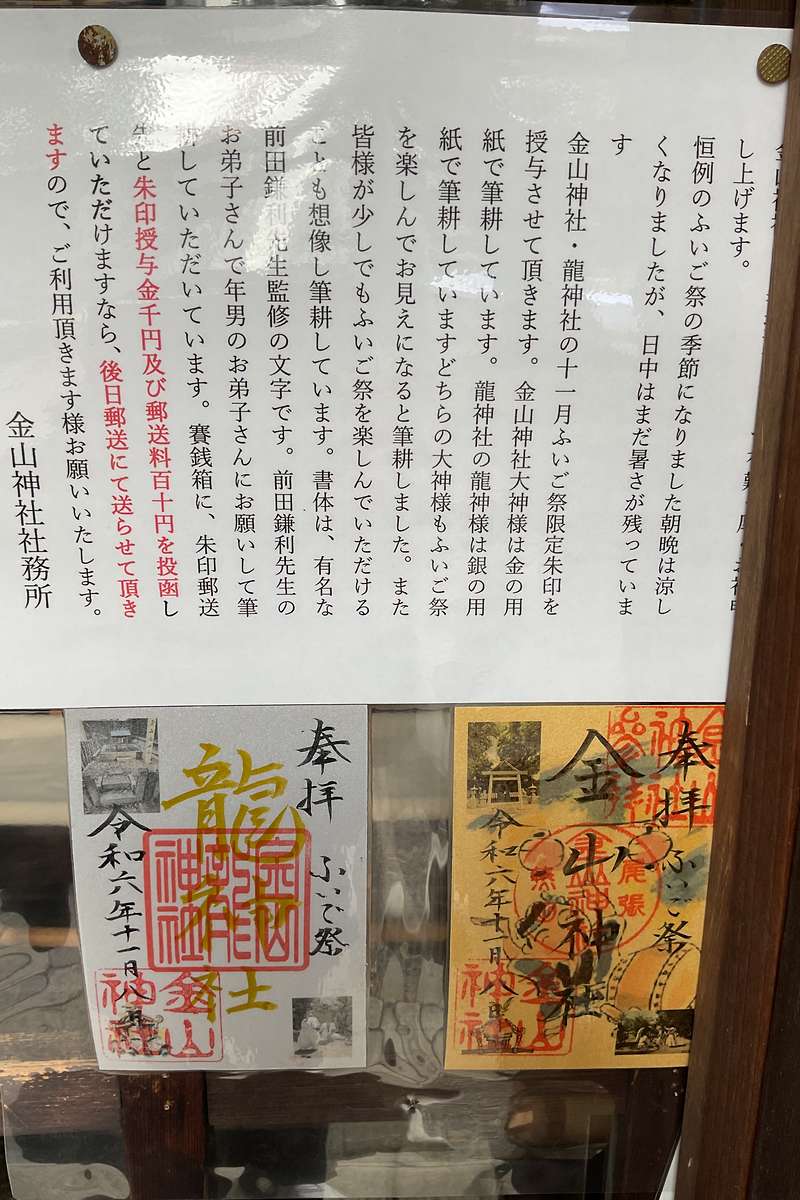 し上げます。
恒例のふいご祭の季節になりました朝晩は涼し
くなりましたが、日中はまだ暑さが残っていま
す
金山神社・龍神社の十一月ふいご祭限定朱印を
授与させて頂きます。金山神社大神様は金の用
紙で筆耕しています。龍神社の龍神様は銀の用
紙で筆耕していますどちらの大神様もふいご祭
を楽しんでお見えになると筆耕しました。また
皆様が少しでもふいご祭を楽しんでいただける
ことも想像し筆耕しています。書体は、有名な
前田鎌利先生監修の文字です。前田鎌利先生の
お弟子さんで年男のお弟子さんにお願いして筆
耕していただいています。賽銭箱に、朱印郵送
と朱印授与金千円及び郵送料百十円を投函し
ていただけますなら、後日郵送にて送らせて頂き
ますので、ご利用頂きます様お願いいたします。
金山神社社務所
奉拝 ふいご祭
金山神社
令和六年十一月八日
尾張
金山
神社
奉拝 ふいご祭
龍神社
令和六年十一月八日
金山
神社